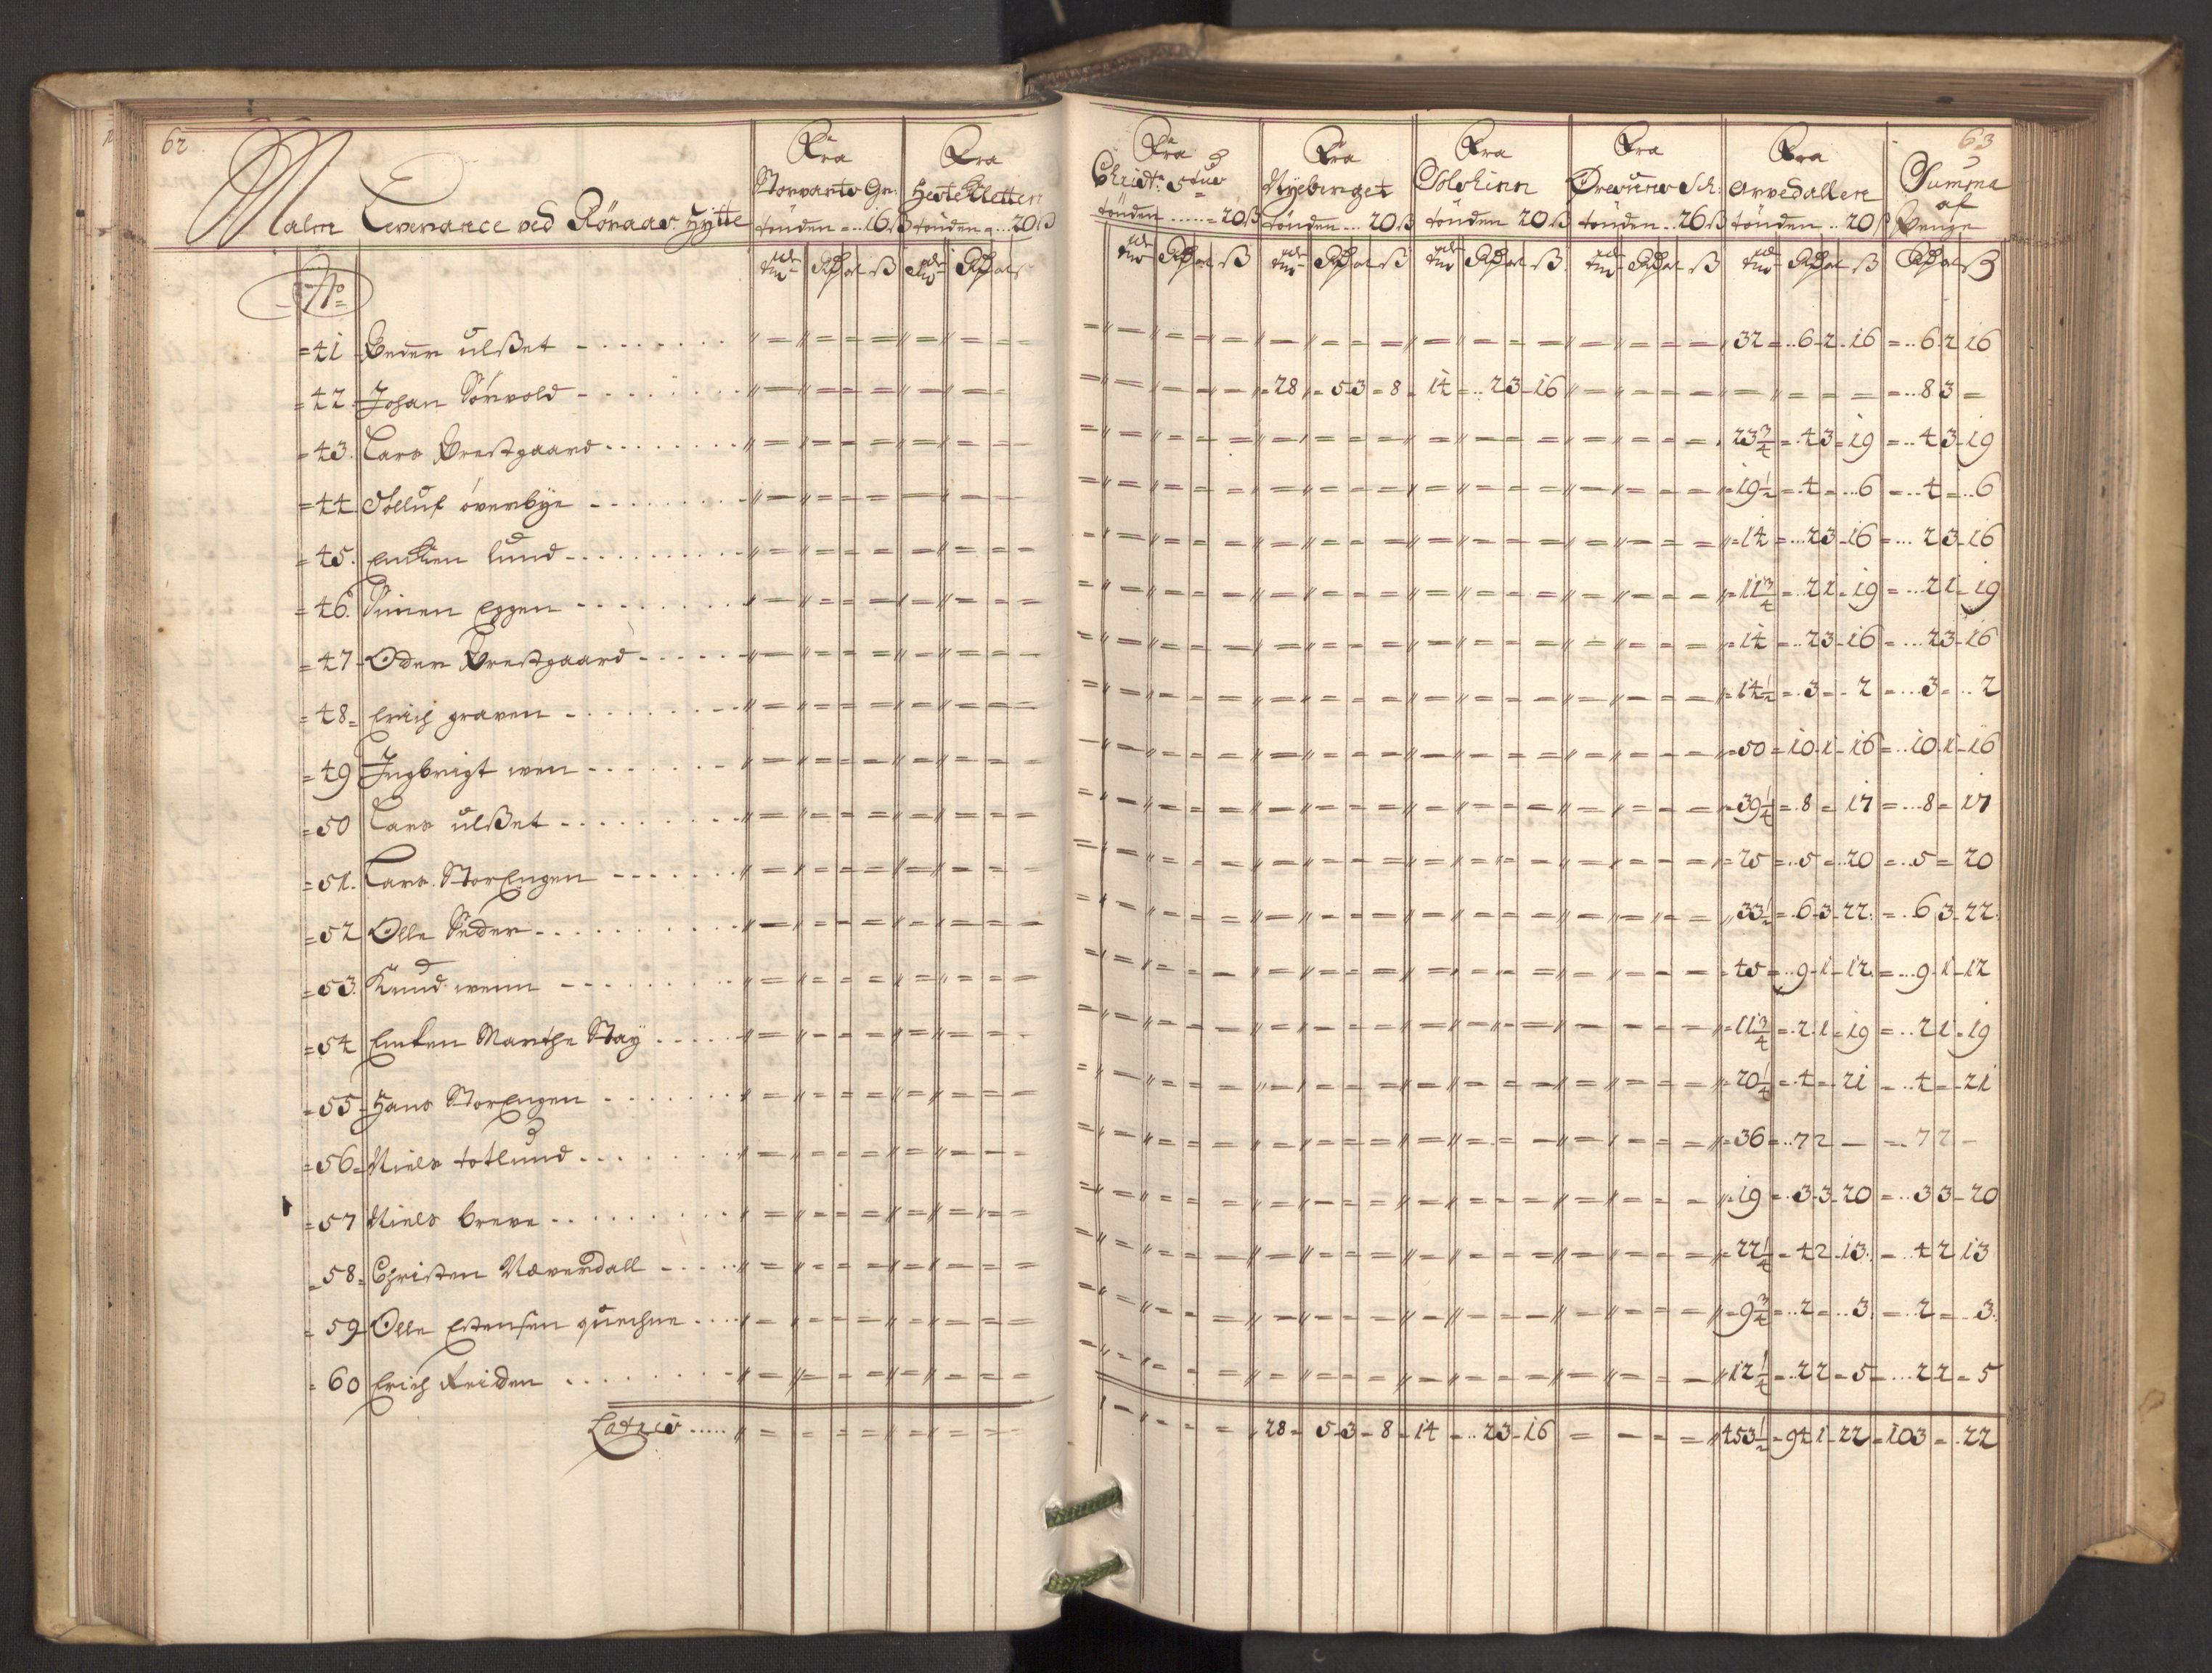 62
Malm Leverance ved Röraas Hÿtte
Fra Storvarts Gr: tönden = ... 16 ß
Fra Hestekletten tönden = ... 20 ß
Fra Christ: 5tus tönden ...... = 20 ß
Fra Nÿeberget tönden ... 20 ß
Fra Solskinn tönden 20 ß
Fra tönden .. 26 ß
Fra Arvedallen tönden .. 20 ß
63
Summa af Penge
No
= 41 Peder ulßet - - - - - - - - 32 = .. 6 - 2 - 16 = .. 6 2 16
= 42 Johan Sörvold - - - - - - - 28 = 5 3 = 8 - 14 = .. 2 3 - 16 = ... 8 3 =
= 43. Lars Prestgaard - - - - - - - 23 3/4 = . 4 3 = 19 = .. 4 3 - 19
= 44 Olluf överbÿe - - - - - - - 19 1/2 = . 4 = ... 6 = ... 4 = .. 6
= 45. Encken lund - - - - - - - = 14 = ... 2 3 - 16 = ... 2 3 - 16
= 46. Simen Eggen - - - - - - - = 11 3/4 = .. 2 1 - 19 = ... 2 1 - 19
= 47 - Oder Prestgaard - - - - - = 14 = .. 2 3 - 16 = ... 2 3 - 16
= 48 = Erich graven - - - - - - - = 14 1/2 = .. 3 = .. 2 = ... 3 = .. 2
= 49 Ingbrigt wen - - - - - - - = 50 = 10 - 1 - 16 = .. 10 . 1 - 16
= 50 Lars ulßet - - - - - - - - = 39 1/4 = .. 8 = 17 = ... 8 = 17
= 51. Lars StorEngen - - - - - - - = 25 = .. 5 = .. 20 = ... 5 = 20
= 52 Olle Sæder - - - - - - - - 33 1/2 = . 6 - 3 - 22. = .. 6 3 - 22.
= 53. Knud wenn - - - - - - - = 45 = .. 9 - 1 - 12. = ... 9 - 1 - 12
= 54 Encken Marthe Staÿ - - - - - = 11 3/4 = .. 2 - 1 = 19 = .. 2 1 - 19
= 55 - Hans StorEngen - - - - - - - = 20 1/4 = . 4 = 21 = .. 4 = 21
= 56 = Niels totlund - - - - - - - = 36 = .. 7 2 — = .. 7 2 -
= 57 Niels breve - - - - - - - = 19 = .. 3 - 3 - 20 = ... 3 3 - 20
= 58 = Christen Næverdall - - - - - = 22 1/4 = 4 2 - 13. = .. 4 2 13
= 59 - Olle Estensen quechne - - - - = 9 3/4 = .. 2 = .. 3. = .. 2 = .. 3.
= 60 Erich - - - - - - - 12 1/4 = .. 2 2 = 5 = .... 2 2 = 5
Latris ..... 28 = 5 - 3 = 8 = 14 = .. 2 3 - 16 = 453 1/2 = 94 1 - 22 = 103 = . 22